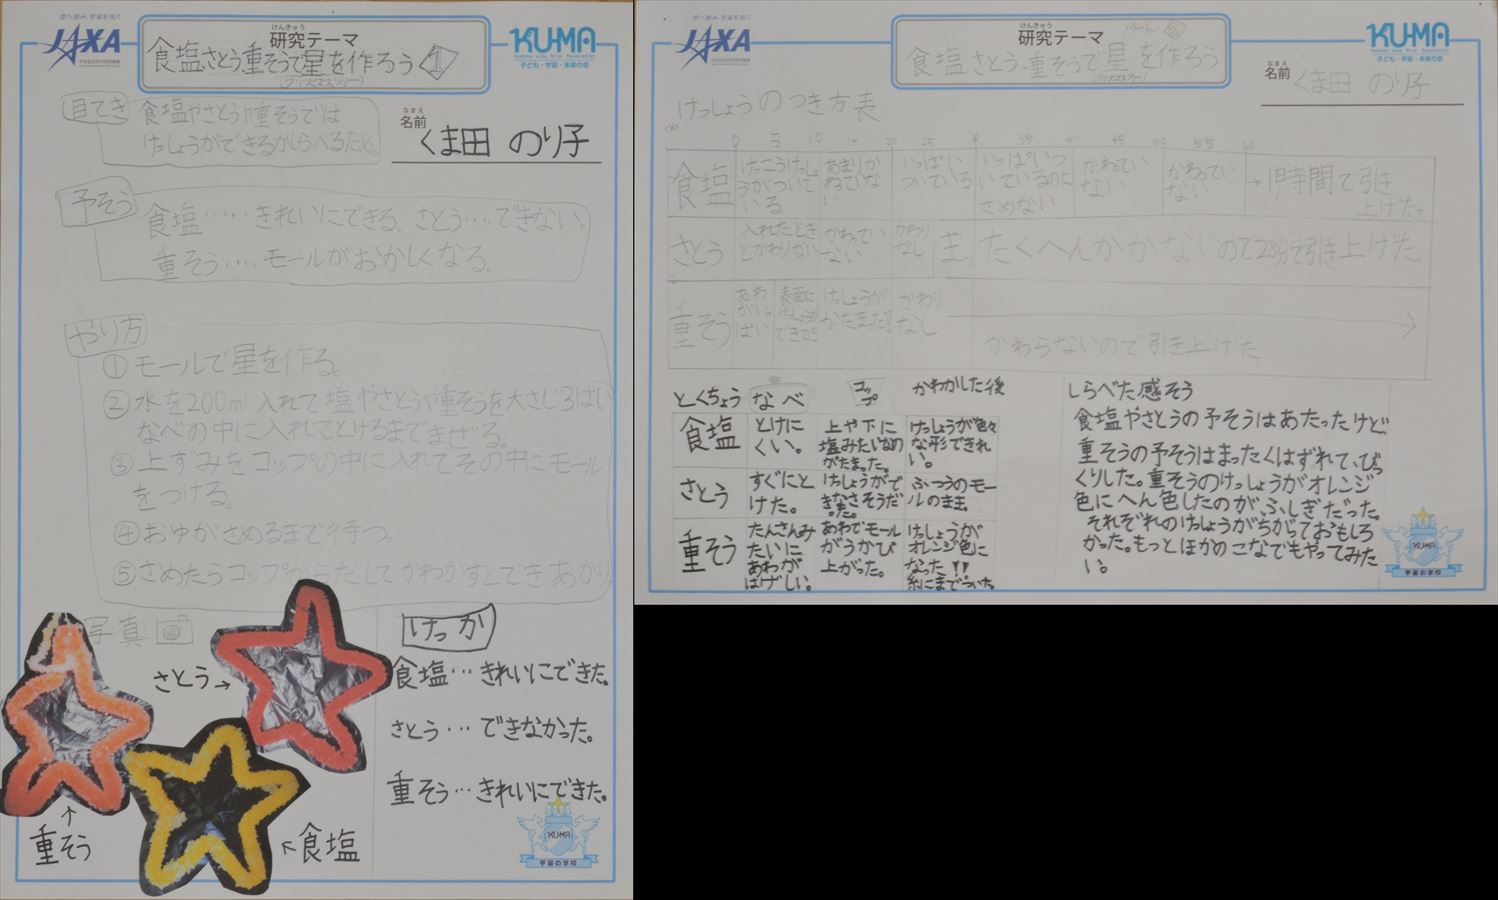 空へ挑み、宇宙を拓く
JAXA
けんきゅう
研究テーマ
食塩さとう重そうで星を作ろう①
(クリスマスツリー)
KUMA
子ども・宇宙・未来の会
目てき
食塩やさとうや重そうでは
けっしょうができるかしらべるため。
なまえ
名前
くま田 のり子
予そう
食塩……きれいにできる。さとう‥‥できない。
重そう‥‥モールがおかしくなる。
やり方
①モールで星を作る。
②水を200ml入れて塩やさとうや重そうを大さじ3ばい
なべの中に入れてとけるまでまぜる。
③上ずみをコップの中に入れてその中にモール
をつける。
④おゆがさめるまで待つ。
⑤さめたらコップからだしてかわかすとできあがり
写真
さとう→
↑
重そう
←食塩
けっか
食塩…きれいにできた。
さとう…できなかった。
重そう…きれいにできた。
KUMA
宇宙の学校
空へ挑み、宇宙を拓く
JAXA
けんきゅう
研究テーマ
パート②
食塩さとう重そうで星を作ろう
(クリスマスツリー)
KUMA
子ども・宇宙・未来の会
なまえ
名前
くま田 のり子
けっしょうのつき方表
0 5 10 15 20 25 30 35 40 45 50 55 60
食塩
けっこうけっしょ
うがついて
いる
あまりか
わっていな
い
いっぱい
ついている
いっぱいつ
いているのに
さめない
かわってい
ない
かわってい
ない
→1時間で引き
上げた。
さとう
入れたとき
とかわりない
かわってい
ない
かわり
なし
まったくへんかがないので20分で引き上げた。
重そう
あわ
がいっ
ぱい
表面に
けっしょうが
できてる
けっしょうが
かたまった!
かわり
なし
かわらないので引き上げた
とくちょう
なべ
コップ
かわかした後
食塩
とけに
くい。
上や下に
塩みたいなめ
がたまった。
けっしょうが色々
な形できれ
い。
さとう
すぐにと
けた。
けっしょうがで
きなさそうだ
った。
ふつうのモー
ルのまま。
重そう
たんさんみ
たいに
あわが
はげしい。
あわでモール
がうかび
上がった。
けっしょうが
オレンジ色に
なった!!
糸にまでついた。
しらべた感そう
食塩やさとうの予そうはあたったけど、
重そうの予そうはまったくはずれて、びっ
くりした。重そうのけっしょうがオレンジ
色にへん色したのが、ふしぎだった。
それぞれのけっしょうがちがっておもしろ
かった。もっとほかのこなでもやってみた
い。
KUMA
宇宙の学校